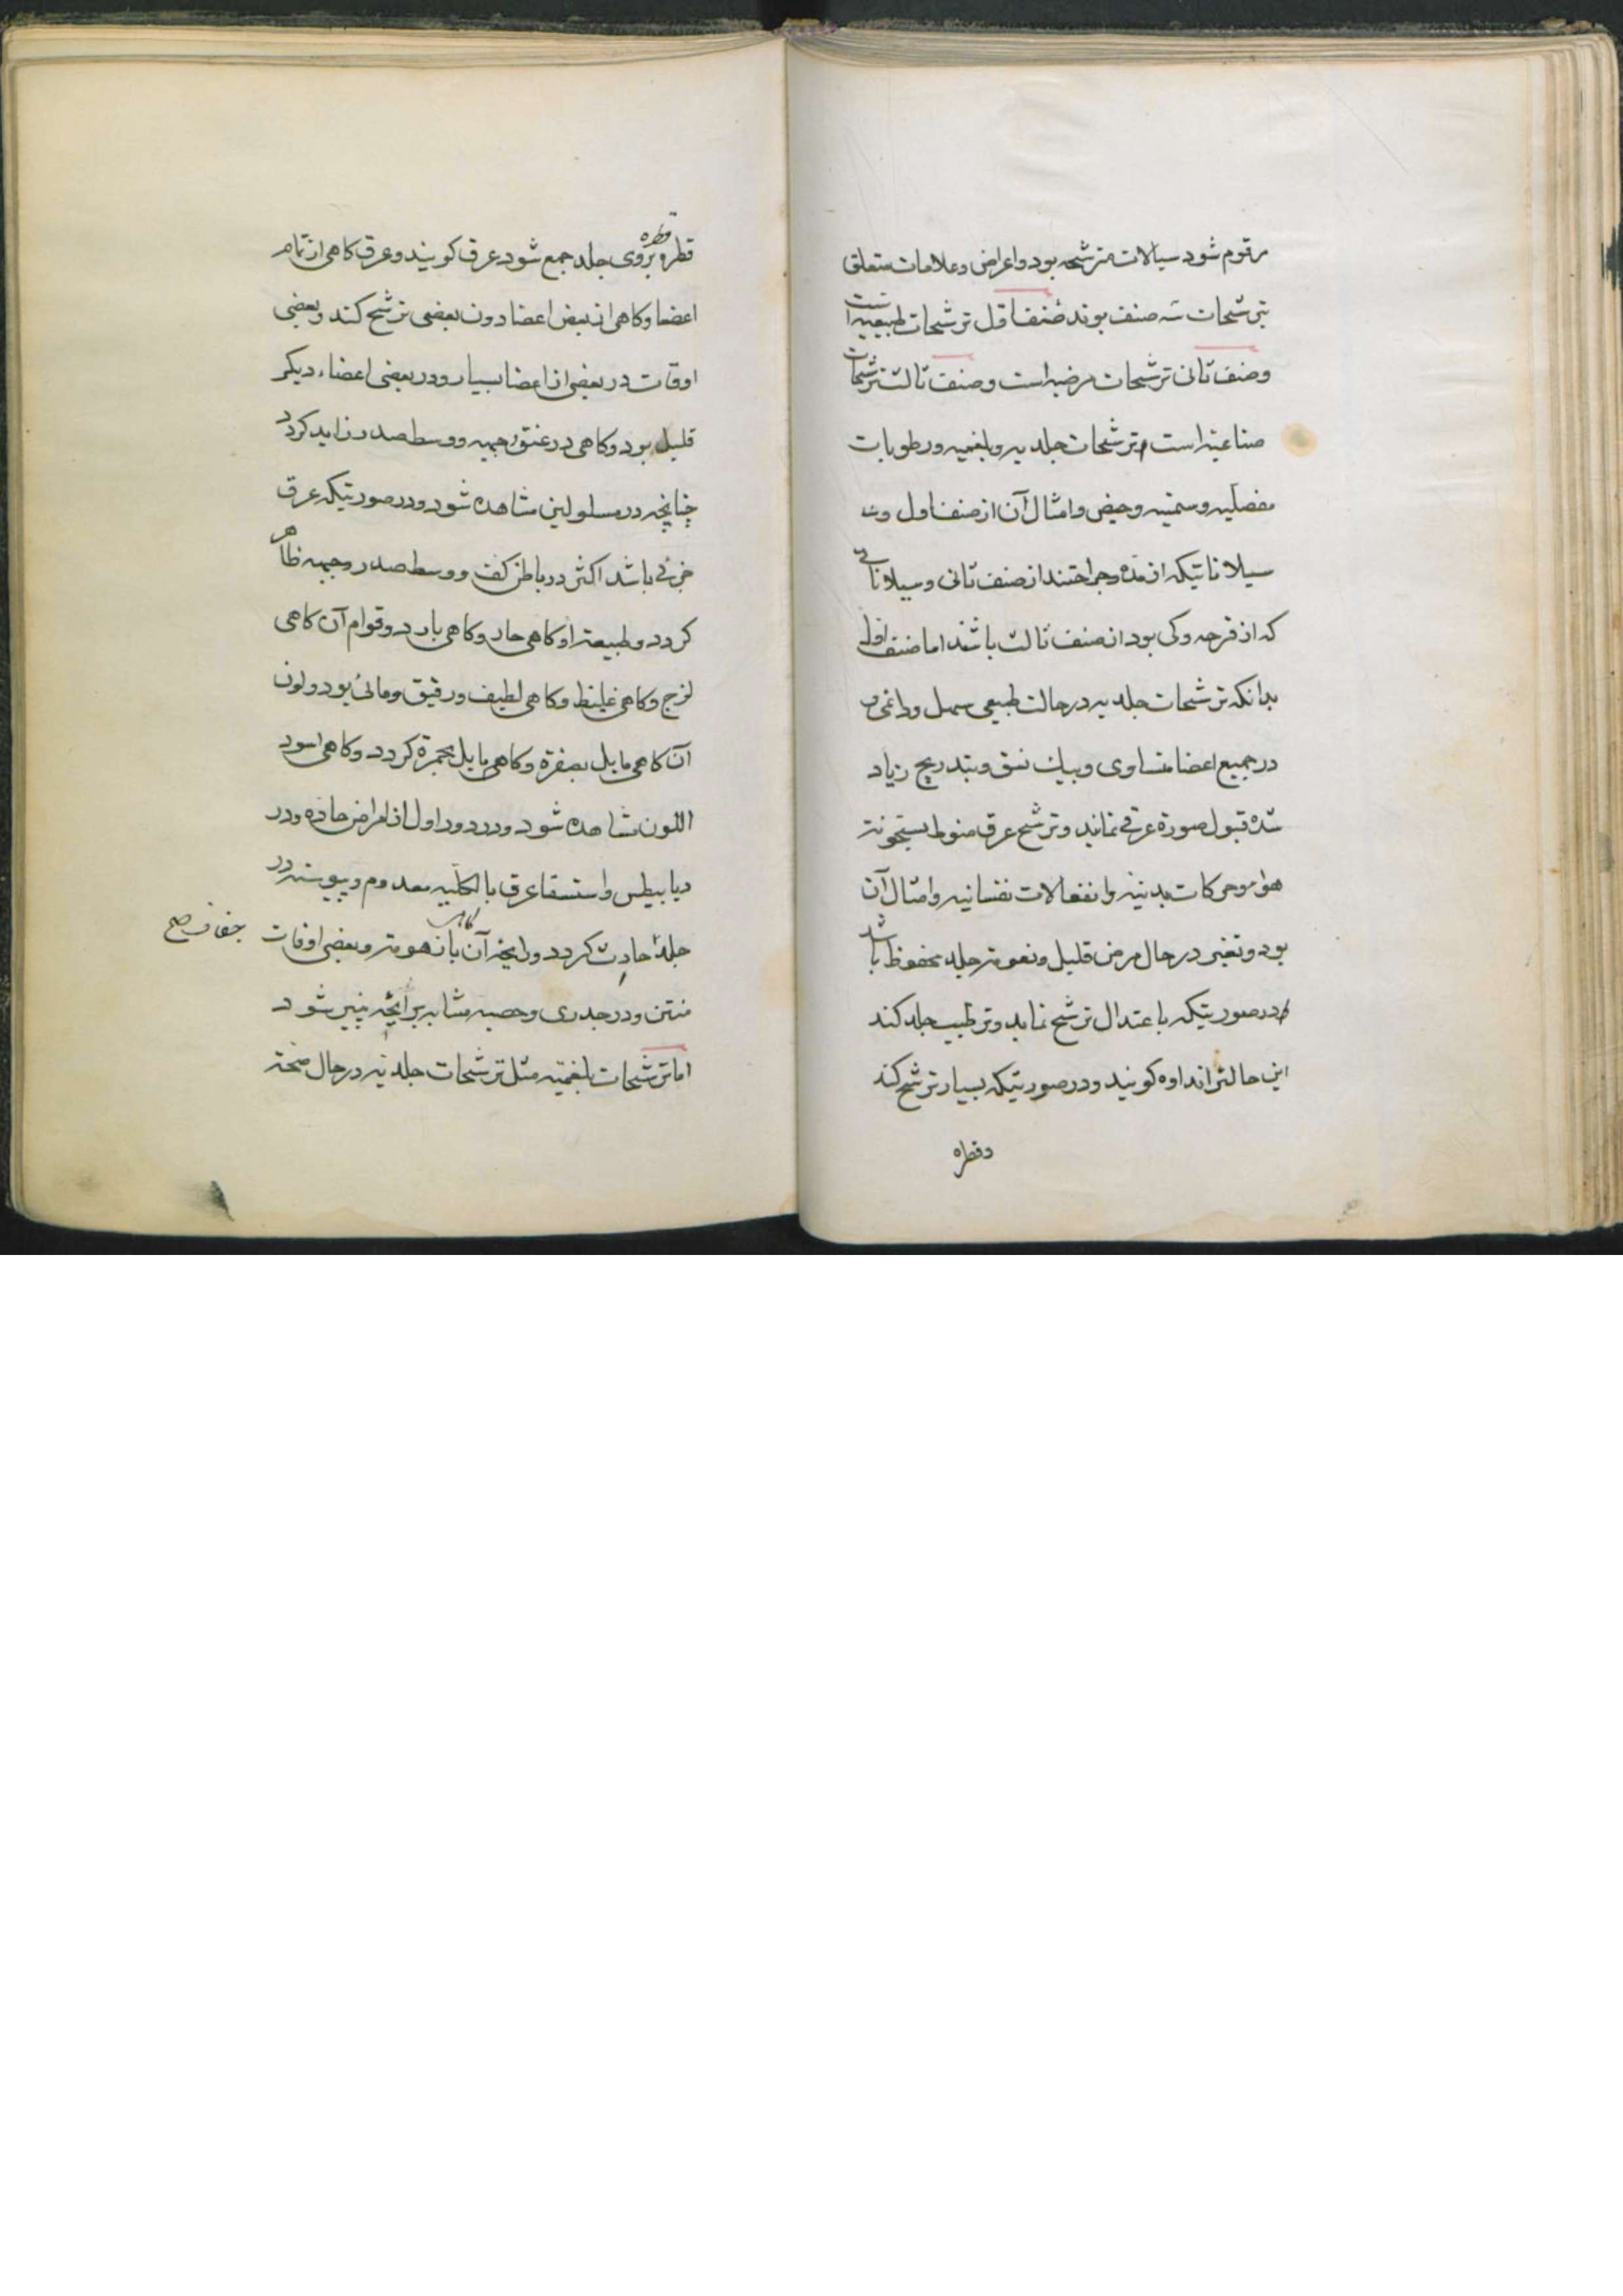 مرقوم شود سیالات مترشحه بود و اعراض و علامات متعلق
بترشحات سه صنف بوند صنف اول ترشحات طبیعیه است
و صنف ثانی ترشحات مرضیه است و صنف ثالث ترشحات
صناعیه است و ترشحات جلدیه و بلغمیه و رطوبات
مفصلیه و سمنیه و حیض و امثال آن از صنف اول و
سیلاناتیکه از مده و جراحتند از صنف ثانی و سیلاناتی
که از قرحه و کی بود از صنف ثالث باشند اما صنف اول
بدانکه ترشحات جلدیه در حالت طبیعی سهل و داغمی و
در جمیع اعضا متساوی و بیک نسق و بتدریج زیاد
شده قبول صورة عرقی نماید و ترشح عرق منوط بسخونة
هوا و حرکات بدنیه و انفعالات نفسانیه و امثال آن
بود و تغیر در حال مرض قلیل و نعومة جلد محفوظ باشد
در صورتیکه باعتدال ترشح نماید و ترطیب جلد کند
این حالترا نداوه کویند و در صورتیکه بسیار ترشح کند
و قطره
قطره قطره بروی جلد جمع شود عرق کویند و عرق کاهی از تمام
اعضا و کاهی از بعض اعضا دون بعضی ترشح کند و بعضی
اوقات در بعضی از اعضا بسیار و در بعضی اعضاء دیکر
قلیل بود و کاهی در عنق و جبهه و وسط صدر زاید کردد
چنانچه در مسلولین مشاهده شود و در صورتیکه عرق
جزئی باشد اکثر در باطن کف و وسط صدر و جبهه ظاهر
کردد و طبیعة او کاهی حار و کاهی بارد و قوام آن کاهی
لزج و کاهی غلیظ و کاهی لطیف و رقیق و مائی بود و لون
آن کاهی مایل بصفرة و کاهی مایل بحمرة کردد و کاهی اسود
اللون مشاهده شود و در دور اول از امراض حاده و در
دیابیطس و استسقا عرق بالکلیه معدوم و پیوسته در
جلد جفاف صح حادث کردد و رایحه آن کاهی با زهومة و بعضی اوقات
منتن و در جدری و حصبه مشابه برایحه پنیر شود
اما ترشحات بلغمیه مثل ترشحات جلدیه در حال صحة